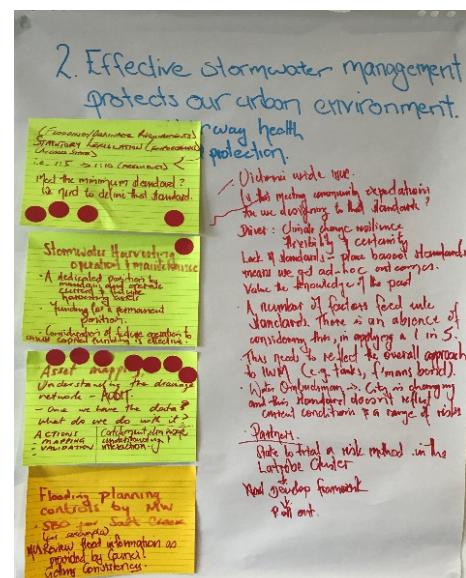 2. Effective stormwater management
protects our urban environment.
way health
protection.
(Floodway/Drainage Requirements)
Statutory Legislation
i.e. 1:5
Meet the minimum standard?
is need to define that standard.
Stormwater Harvesting
operation & maintenance
- A dedicated position to
maintain and operate
current & future
harvesting assets
- Funding for a permanent
position.
- Consideration of future operation to
capital funding is effective.
Asset mapping
Understanding the drainage
network - AUDIT.
- Once we have the data?
what do we do with it?
ACTIONS
- MAPPING
- VALIDATION
Catchment, drainage
understanding /
interaction.
Flooding planning
controls by MW
- SBO for Salt Creek
(for example)
Review flood information as
provided by Council
consistency.
Victoria wide issue.
Is this meeting community expectations
Are we designing to that standards?
Driver: Climate change resilience
flexibility & certainty
Lack of standards - place based standards
means we get ad-hoc outcomes.
Value the knowledge of the past
A number of factors feed into
standards. There is an absence of
considering this, in applying a 1 in 5.
This needs to reflect the overall approach
to IWM (e.g. tanks, bond).
- Water Ombudsman -> City is changing
and this standard doesn't reflect
current conditions & a range of risks
- Partners:
State to trial a risk method in the
Latrobe Cluster
And develop framework
Roll out.